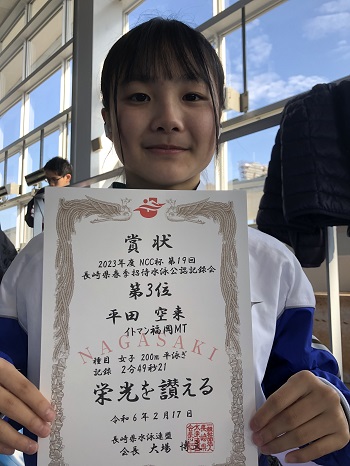 賞状
2023年度 NCC杯 第19回
長崎県春季招待水泳公認記録会
第3位
平田 空来
イトマン福岡MT
NAGASAKI
種目 女子 200m 平泳ぎ
記録 2分49秒21
栄光を讃える
令和6年2月17日
長崎県水泳連盟
会長 大場 博